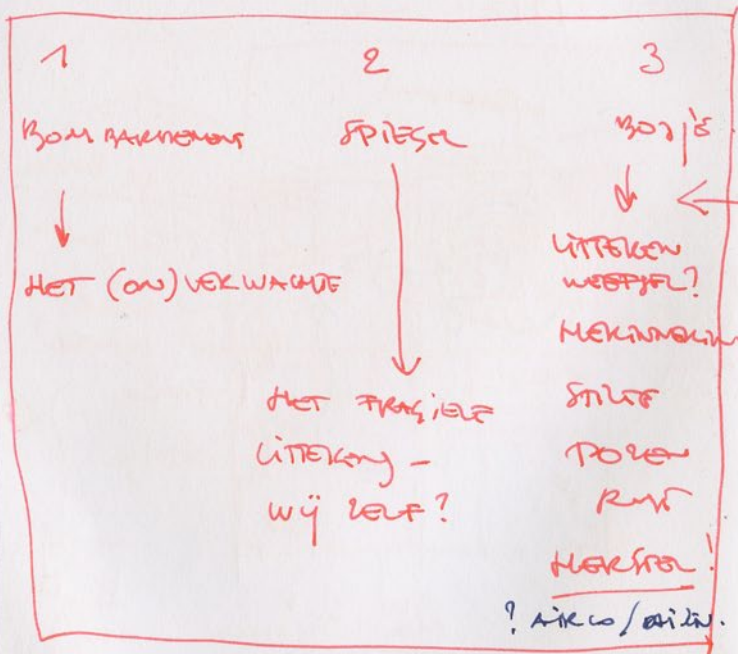 1
BOMBARDEMENT
HET (ON)VERWACHTE
2
SPIEGEL
HET FRAGIELE
LITTEKENS –
WIJ ZELF?
3
LITTEKEN
HERINNERING
STILTE
RUST
HERSTEL!
? AIRCO /